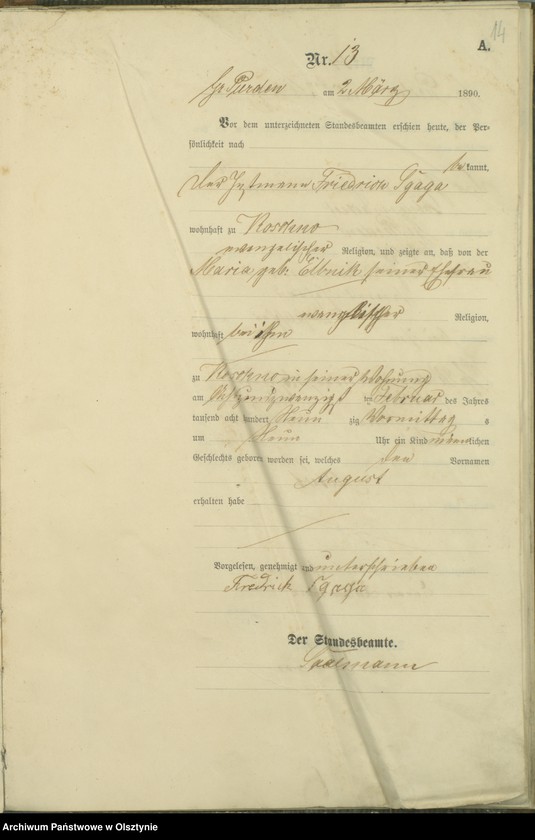 14
A.
Nr. 13
Gr Purden am 2 März 1890.
Vor dem unterzeichneten Standesbeamten erschien heute, der Per-
sönlichkeit nach
be kannt,
der Friedrich
wohnhaft zu
evangelischer Religion, und zeigte an, daß von der
Maria, geb. seiner Ehefrau
evangelischer Religion,
wohnhaft bei ihm
zu in seiner Wohnung
am ten Februar des Jahres
tausend acht hundert Neun zig Vormittag s
um Neun Uhr ein Kind männlichen
Geschlechts geboren worden sei, welches den Vornamen
August
erhalten habe
Vorgelesen, genehmigt und unterschrieben
Der Standesbeamte.
Archiwum Państwowe w Olsztynie